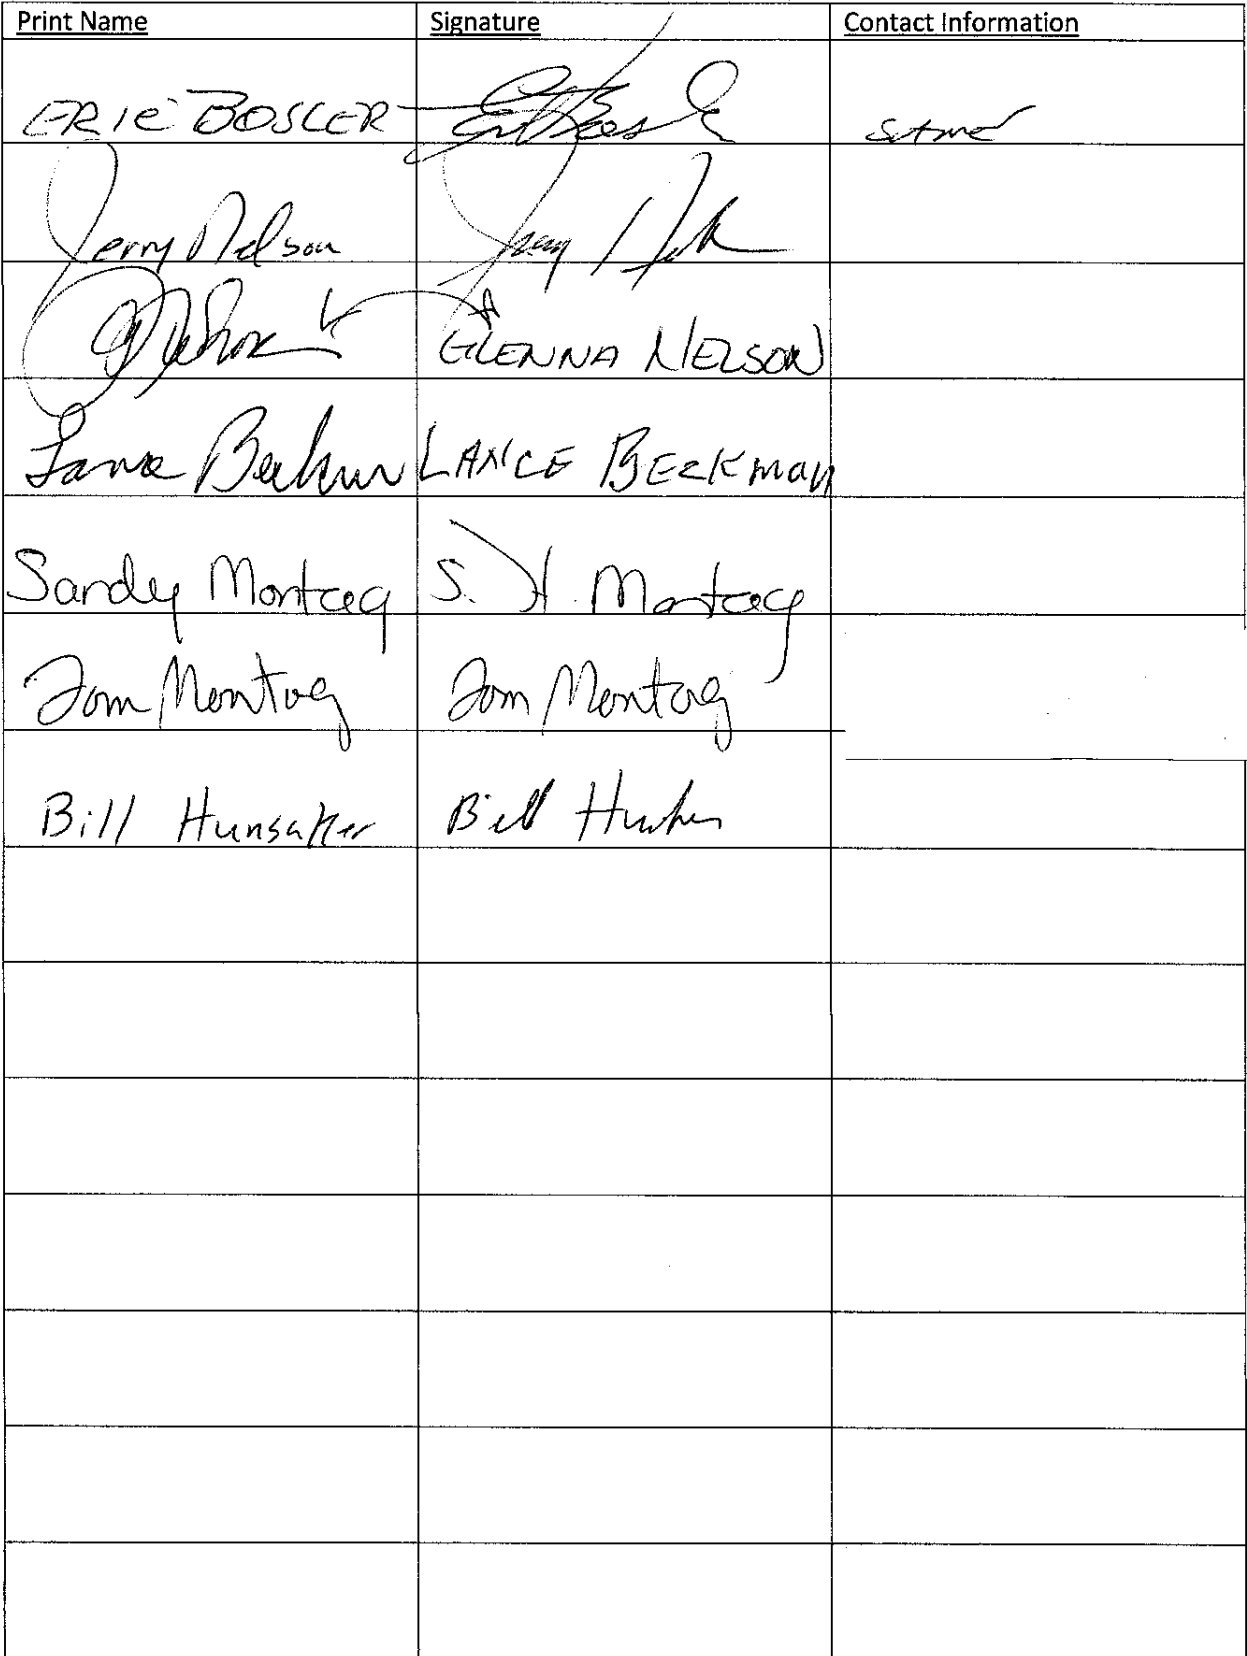 Print Name Signature Contact Information
ERIC BOSLER same
Jerry Nelson Jerry
GLENNA NELSON
Lance Beckman LANCE BECKMAN
Sandy Montag S. H. Montag
Tom Montag Tom Montag
Bill Hunsaker Bill